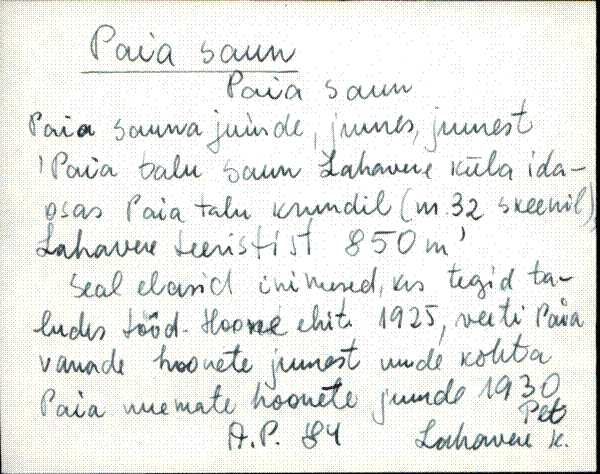 Paia saun
Paia saun
Paia sauna juurde, juures, juurest
'Paia talu saun Lahavere küla ida-
osas Paia talu krundil (nr. 32 skeemil),
Lahavere teeristist 850 m'
Seal elasid inimesed, kes tegid ta-
ludes tööd. Hoone ehit. 1925, veeti Paia
vanade hoonete juurest uude kohta
Paia uuemate hoonete juurde 1930
A.P. 84 Lahavere k.